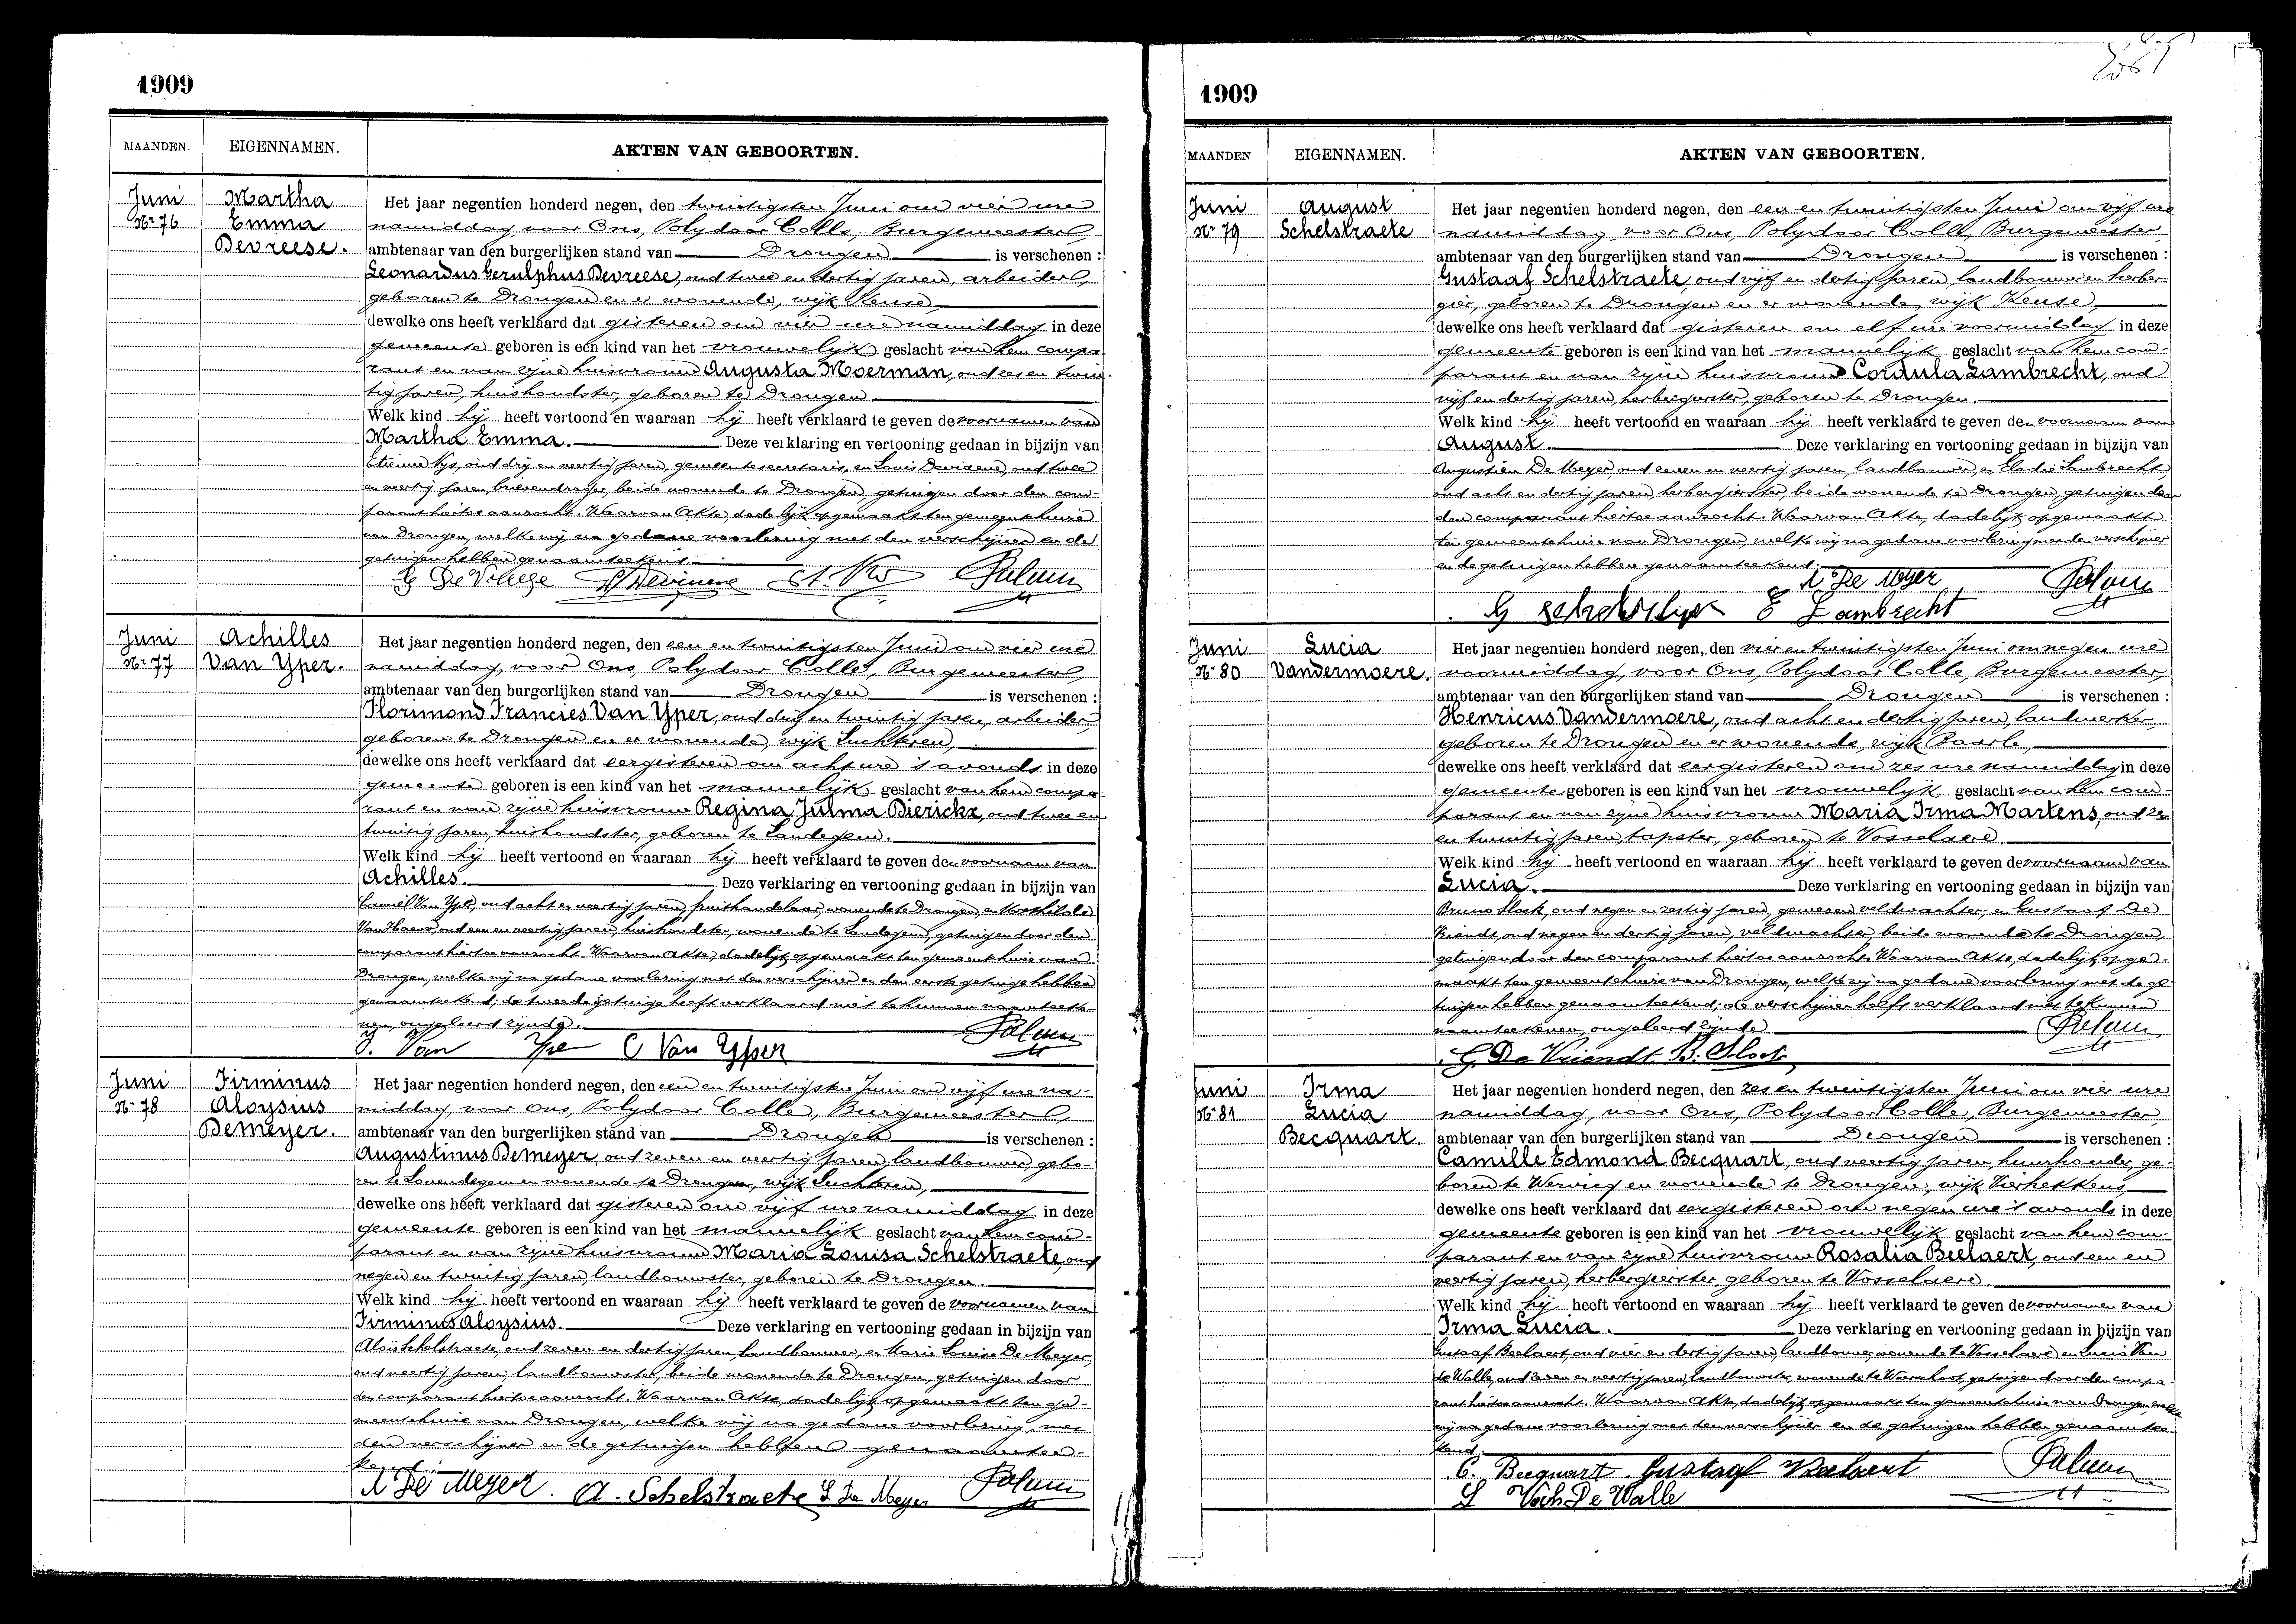 1909
MAANDEN. EIGENNAMEN. AKTEN VAN GEBOORTEN.
Juni
Nr 76
Martha
Emma
Devreese.
Het jaar negentien honderd negen, den twintigsten Juni om vier ure
namiddag, voor Ons, Polydoor Colle, Burgemeester,
ambtenaar van den burgerlijken stand van Drongen is verschenen :
Leonardus Gerulphus Devreese, oud twee en dertig jaren, arbeider,
geboren te Drongen en er wonende, wijk Keuse,
dewelke ons heeft verklaard dat gisteren om vier ure namiddag in deze
gemeente geboren is een kind van het vrouwelijk geslacht van hem compa-
rant en van zijne huisvrouw Augusta Moerman, oud zes en twin-
tig jaren, huishoudster, geboren te Drongen.
Welk kind hij heeft vertoond en waaraan hij heeft verklaard te geven de voornamen van
Martha Emma. Deze verklaring en vertooning gedaan in bijzijn van
Etienne Nys, oud drij en veertig jaren, gemeentesecretaris, en Louis Devisene, oud twee
en veertig jaren, brievendrager, beide wonende te Drongen, getuigen door den com-
parant hiertoe aanzocht. Waarvan Akte, dadelijk opgemaakt ten gemeentehuize
van Drongen, welke wij na gedane voorlezing met den verschijner en de
getuigen hebben genaamteekend.
Juni
Nr 77
Achilles
Van Yper.
Het jaar negentien honderd negen, den een en twintigsten Juni om vier ure
namiddag, voor Ons, Polydoor Colle, Burgemeester,
ambtenaar van den burgerlijken stand van Drongen is verschenen :
Florimond Francies Van Yper, oud drij en twintig jaren, arbeider,
geboren te Drongen en er wonende, wijk Luchteren,
dewelke ons heeft verklaard dat eergisteren om acht ure 's avonds in deze
gemeente geboren is een kind van het mannelijk geslacht van hem compa-
rant en van zijne huisvrouw Regina Julma Dierickx, oud twee en
twintig jaren, huishoudster, geboren te Landegem.
Welk kind hij heeft vertoond en waaraan hij heeft verklaard te geven den voornaam van
Achilles. Deze verklaring en vertooning gedaan in bijzijn van
Camiel Van Yper, oud acht en veertig jaren, fruithandelaar, wonende te Drongen, en Mathilde
Van Hoove, oud een en veertig jaren, huishoudster, wonende te Landegem, getuigen door den
comparant hiertoe aanzocht. Waarvan Akte, dadelijk opgemaakt ten gemeentehuize van
Drongen, welke wij na gedane voorlezing met den verschijner en den eerste getuige hebben
genaamteekend; de tweede getuige heeft verklaard niet te kunnen naamteeke-
nen, ongeleerd zijnde.
C Van Yper
Juni
Nr 78
Firminus
Aloysius
Demeyer.
Het jaar negentien honderd negen, den een en twintigsten Juni om vijf ure na-
middag, voor Ons, Polydoor Colle, Burgemeester,
ambtenaar van den burgerlijken stand van Drongen is verschenen :
Augustinus Demeyer, oud zeven en veertig jaren, landbouwer, gebo-
ren te Lovendegem en wonende te Drongen, wijk Luchteren,
dewelke ons heeft verklaard dat gisteren om vijf ure namiddag in deze
gemeente geboren is een kind van het mannelijk geslacht van hem com-
parant en van zijne huisvrouw Maria Louisa Schelstraete, oud
negen en twintig jaren, landbouwster, geboren te Drongen.
Welk kind hij heeft vertoond en waaraan hij heeft verklaard te geven de voornamen van
Firminus Aloysius. Deze verklaring en vertooning gedaan in bijzijn van
Aloïs Schelstraete, oud zeven en dertig jaren, landbouwer, en Marie Louise De Meyer,
oud veertig jaren, landbouwster, beide wonende te Drongen, getuigen door
den comparant hiertoe aanzocht. Waarvan Akte, dadelijk opgemaakt ten ge-
meentehuize van Drongen, welke wij na gedane voorlezing, met
den verschijner en de getuigen hebben genaamtee-
kend.
A De Meyer. A. Schelstraete L De Meyer
1909
MAANDEN EIGENNAMEN. AKTEN VAN GEBOORTEN.
Juni
Nr 79
August
Schelstraete
Het jaar negentien honderd negen, den een en twintigsten Juni om vijf ure
namiddag, voor Ons, Polydoor Colle, Burgemeester,
ambtenaar van den burgerlijken stand van Drongen is verschenen :
Gustaaf Schelstraete, oud vijf en dertig jaren, landbouwer en herber-
gier, geboren te Drongen en er wonende, wijk Keuse,
dewelke ons heeft verklaard dat gisteren om elf ure voormiddag in deze
gemeente geboren is een kind van het mannelijk geslacht van hem com-
parant en van zijne huisvrouw Cordula Lambrecht, oud
vijf en dertig jaren, herbergierster, geboren te Drongen.
Welk kind hij heeft vertoond en waaraan hij heeft verklaard te geven den voornaam van
August. Deze verklaring en vertooning gedaan in bijzijn van
Augustien De Meyer, oud zeven en veertig jaren, landbouwer, en Elodie Lambrecht
oud acht en dertig jaren, herbergierster, beide wonende te Drongen, getuigen door
den comparant hiertoe aanzocht. Waarvan Akte, dadelijk opgemaakt
ten gemeentehuize van Drongen, welke wij na gedane voorlezing met den verschijner
en de getuigen hebben genaamteekend.
A De Meyer
E Lambrecht
Juni
Nr 80
Lucia
Vandermoere.
Het jaar negentien honderd negen, den vier en twintigsten Juni om negen ure
voormiddag, voor Ons, Polydoor Colle, Burgemeester,
ambtenaar van den burgerlijken stand van Drongen is verschenen :
Henricus Vandermoere, oud acht en dertig jaren, landwerker,
geboren te Drongen en er wonende, wijk Baarle,
dewelke ons heeft verklaard dat eergisteren om zes ure namiddag in deze
gemeente geboren is een kind van het vrouwelijk geslacht van hem com-
parant en van zijne huisvrouw Maria Irma Martens, oud zes
en twintig jaren, tapster, geboren te Vosselaere.
Welk kind hij heeft vertoond en waaraan hij heeft verklaard te geven de voornaam van
Lucia. Deze verklaring en vertooning gedaan in bijzijn van
Bruno Slock, oud negen en zestig jaren, gewezen veldwachter, en Gustaaf De
Vriendt, oud negen en dertig jaren, veldwachter, beide wonende te Drongen,
getuigen door den comparant hiertoe aanzocht. Waarvan Akte, dadelijk opge-
maakt ten gemeentehuize van Drongen, welke wij na gedane voorlezing met de ge-
tuigen hebben genaamteekend; de verschijner heeft verklaard niet te kunnen
naamteekenen, ongeleerd zijnde.
G. De Vriendt B. Slock
Juni
Nr 81
Irma
Lucia
Becquart.
Het jaar negentien honderd negen, den zes en twintigsten Juni om vier ure
namiddag, voor Ons, Polydoor Colle, Burgemeester
ambtenaar van den burgerlijken stand van Drongen is verschenen :
Camille Edmond Becquart, oud veertig jaren, huurhouder, ge-
boren te Wervicq en wonende te Drongen, wijk Vierhekkens,
dewelke ons heeft verklaard dat eergisteren om negen ure 's avonds in deze
gemeente geboren is een kind van het vrouwelijk geslacht van hem com-
parant en van zijne huisvrouw Rosalia Beelaert, oud een en
veertig jaren, herbergierster, geboren te Vosselaere.
Welk kind hij heeft vertoond en waaraan hij heeft verklaard te geven de voornamen van
Irma Lucia. Deze verklaring en vertooning gedaan in bijzijn van
Gustaaf Beelaert, oud vier en dertig jaren, landbouwer, wonende te Vosselaere en Lucia Van
de Walle, oud zeven en veertig jaren, landbouwster, wonende te Waerschoot, getuigen door den compa-
rant hiertoe aanzocht. Waarvan Akte, dadelijk opgemaakt ten gemeentehuize van Drongen, welke
wij na gedane voorlezing met den verschijner en de getuigen hebben genaamtee-
kend.
C. Becquart Gustaaf Beelaert
L Van De Walle